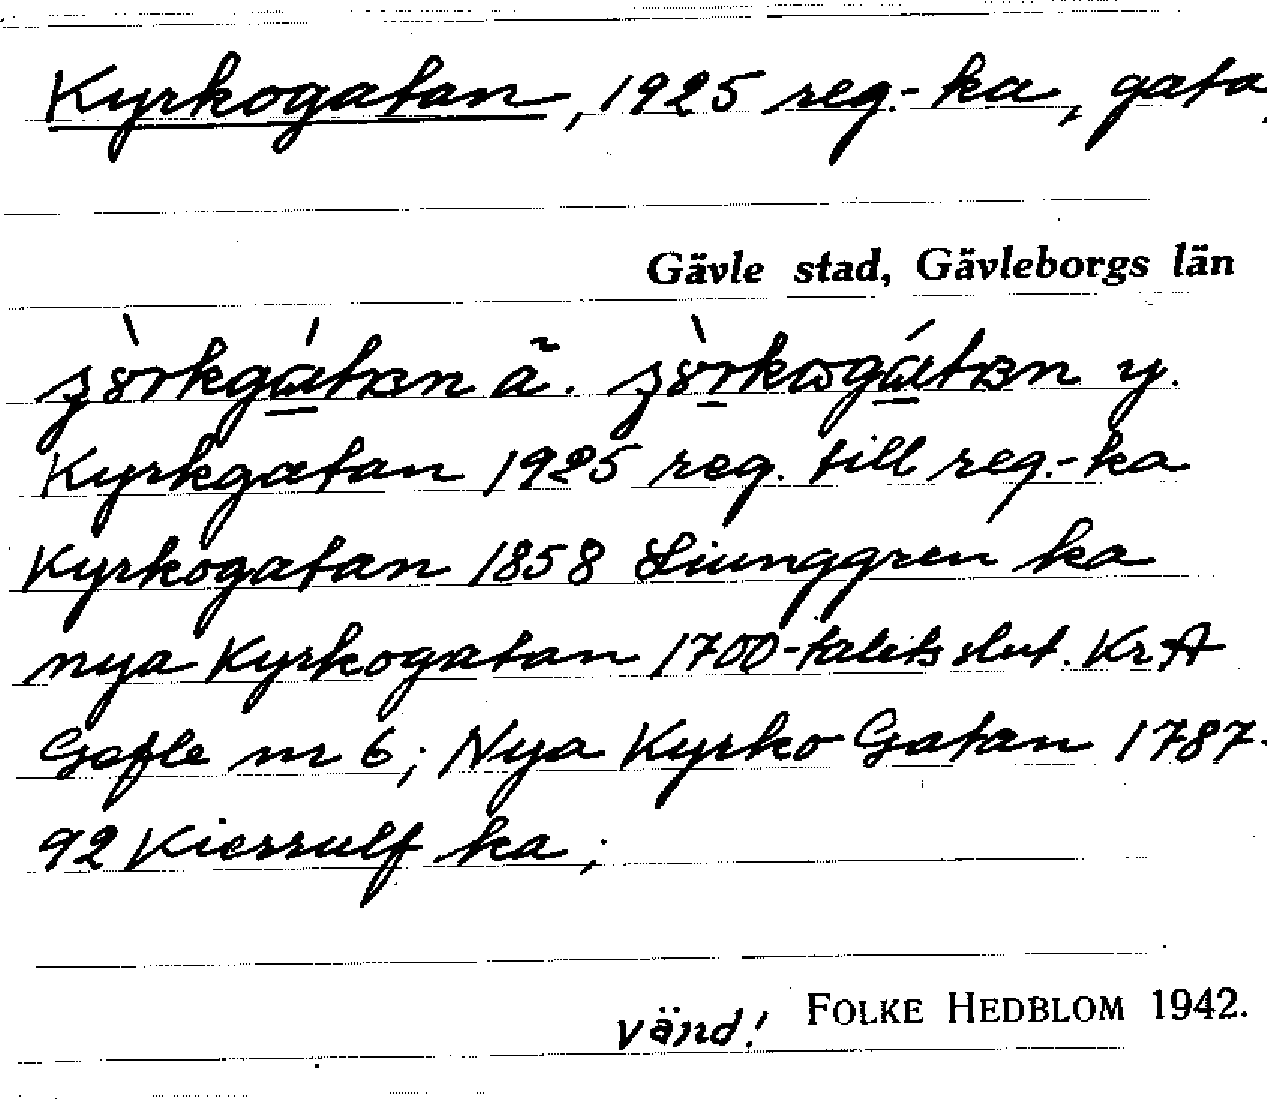 Kyrkogatan, 1925 reg.-ka, gata,
Gävle stad, Gävleborgs län
ä. y.
Kyrkgatan 1925 reg. till reg.-ka
Kyrkogatan 1858 Liunggren ka
nya Kyrkogatan 1700-talets slut. KrA
Gefle nr 6; Nya Kyrko Gatan 1787-
92 Kierrulf ka;
vänd! FOLKE HEDBLOM 1942.